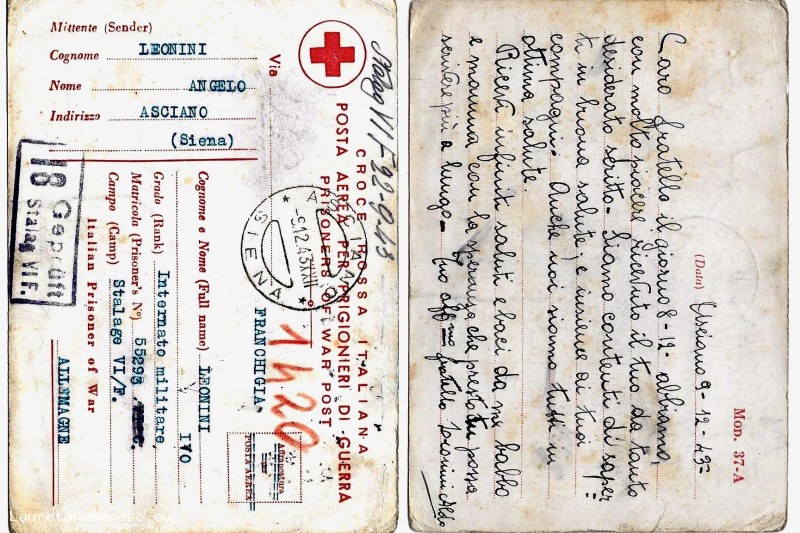 Mittente (Sender)
Cognome LEONINI
Nome ANGELO
Indirizzo ASCIANO
(Siena)
Via
CROCE ROSSA ITALIANA
POSTA AEREA PER PRIGIONIERI DI GUERRA
PRISONERS OF WAR POST
Stalag VI F 22-9-43
ASCIANO
-9.12.43 XXII
* SIENA *
FRANCHIGIA
1420
Affrancatura
POSTA AEREA
18 Geprüft
Stalag VI F.
Cognome e Nome (Full name) LEONINI
IVO
Grado (Rank) Internato militare
Matricola (Prisoner's No) 55293
Campo (Camp) Stalage VI/F.
Italian Prisoner of War
ALLEMAGNE
Lauretanasenese.eu
Mod. 37-A
(Data) Asciano 9-12-43
Caro fratello il giorno 8-12- abbiamo,
con molto piacere ricevuto il tuo da tanto
desiderato scritto- Siamo contenti di saper=
ti in buona salute, e insieme ai tuoi
compagni- Anche noi siamo tutti in
ottima salute.
Ricevi infiniti saluti e baci da me babbo
e mamma con la speranza che presto tu possa
scrivere più a lungo- Tuo aff.mo fratello Leonini Aldo